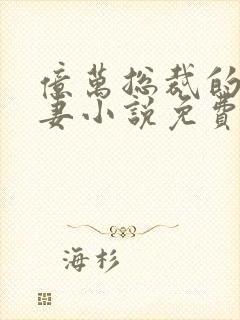 億萬总裁的
妻小說免費
海杉